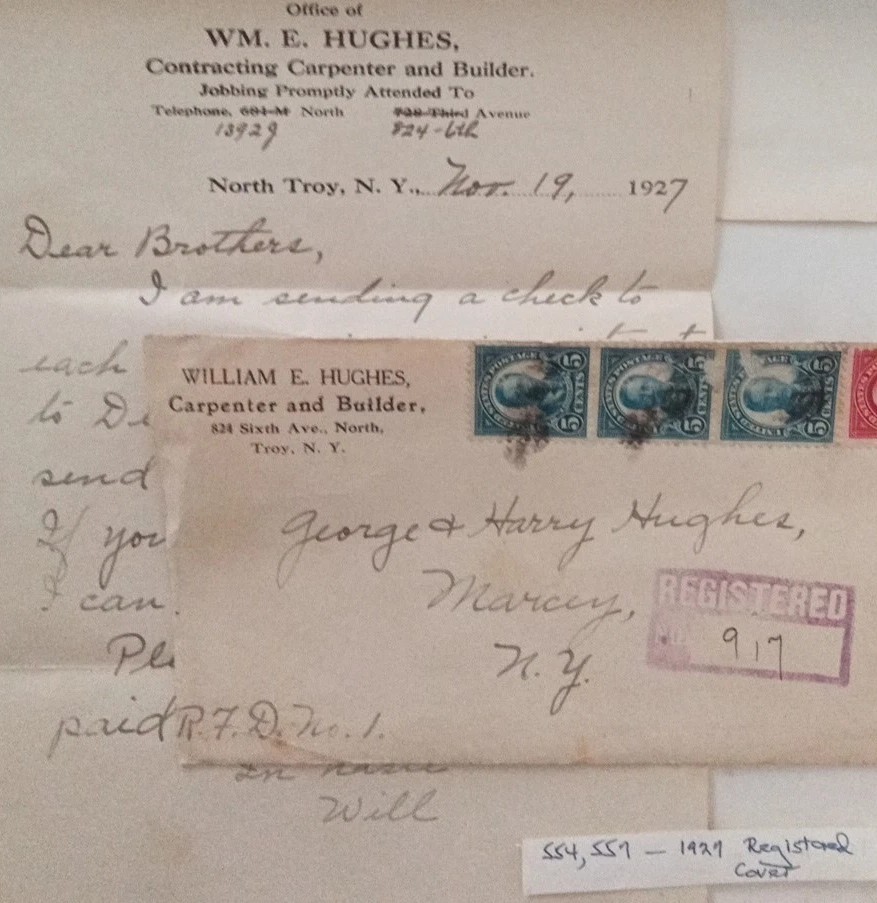 Office of
WM. E. HUGHES,
Contracting Carpenter and Builder.
Jobbing Promptly Attended To
Telephone, 681-M North 728 Third Avenue
1392J 824-6th
North Troy, N. Y., Nov. 19, 1927
Dear Brothers,
I am sending a check to
each
to De
send
If you
I can
Ple
paid
Will
WILLIAM E. HUGHES,
Carpenter and Builder,
824 Sixth Ave., North,
Troy, N. Y.
UNITED STATES POSTAGE 5 CENTS 5
UNITED STATES POSTAGE 5 CENTS 5
UNITED STATES POSTAGE 5 CENTS 5
George & Harry Hughes,
Marcy,
N. Y.
R. F. D. No. 1.
REGISTERED
No. 917
554, 557 — 1927 Registered
Cover